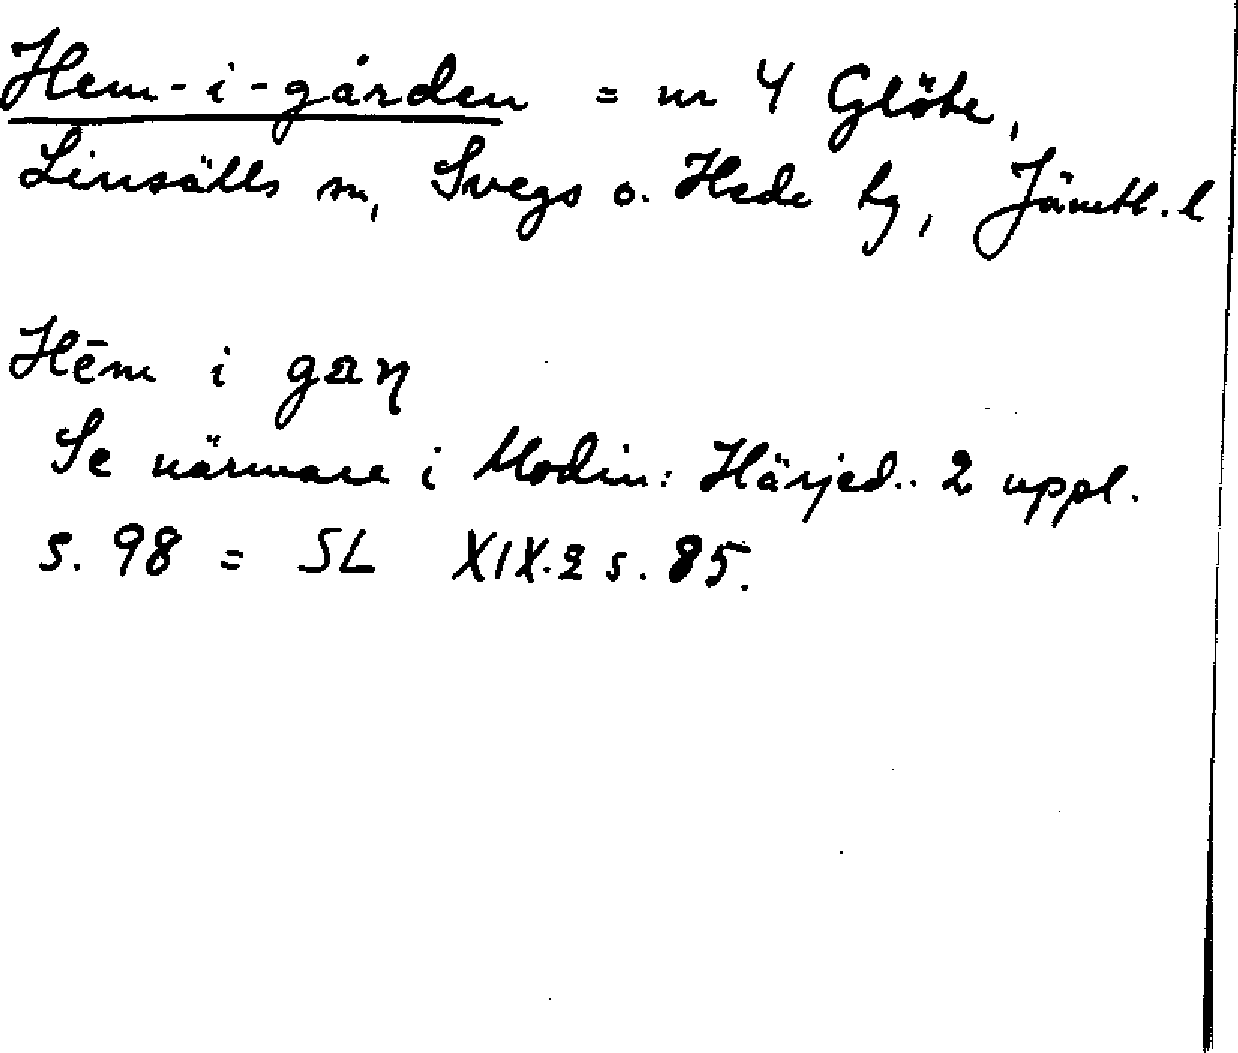 Hem-i-gården = nr 4 Glöte,
Linsälls sn, Svegs o. Hede tg, Jämtl. l
Hēm i gaŋ
Se närmare i Modin: Härjed.. 2 uppl.
s. 98 = SL XIX.2 s. 85.